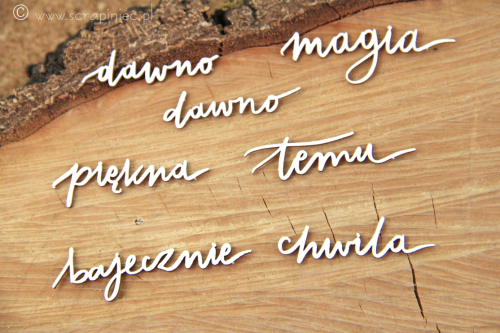 © www.scrapiniec.pl
dawno magia
dawno
piękna temu
bajecznie chwila